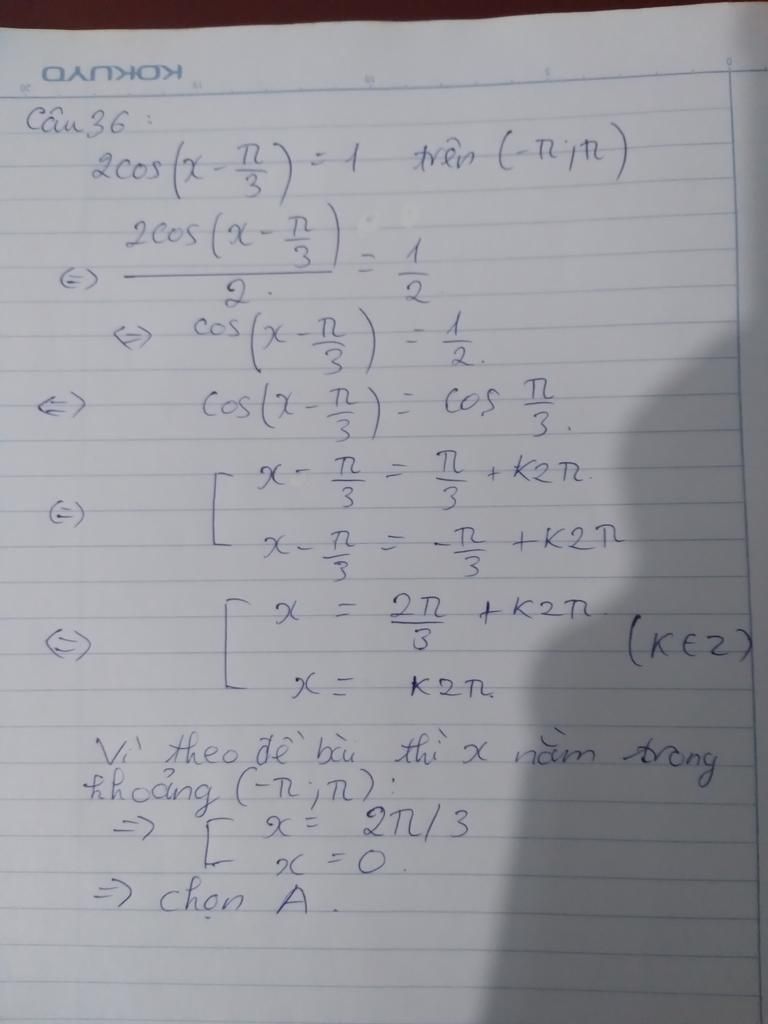 KOKUYO
Câu 36 :
2cos(x - π/3) = 1 trên (-π; π)
<=> 2cos(x - π/3) / 2. = 1/2
<=> cos(x - π/3) = 1/2.
<=> cos(x - π/3) = cos π/3.
<=> [ x - π/3 = π/3 + K2π.
x - π/3 = -π/3 + K2π
<=> [ x = 2π/3 + K2π.
(K∈Z)
x = K2π.
Vì theo đề bài thì x nằm trong
khoảng (-π; π) :
=> [ x = 2π/3
x = 0.
=> chọn A.